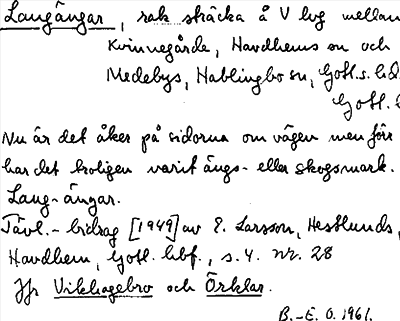 Langängar, rak sträcka å V lvg mellan
Kvinnegårde, Havdhems sn och
Medebys, Hablingbo sn, Gotl. s. hd
Gotl. l
Nu är det åker på sidorna om vägen men förr
har det troligen varit ängs- eller skogsmark.
Lang-ängar.
Tävl.- bidrag [1949] av E. Larsson, Hestlunds,
Havdhem, Gotl. hbf., s. 4. nr. 28
Jfr Vikhagebro och Örklar.
B.-E. O. 1961.